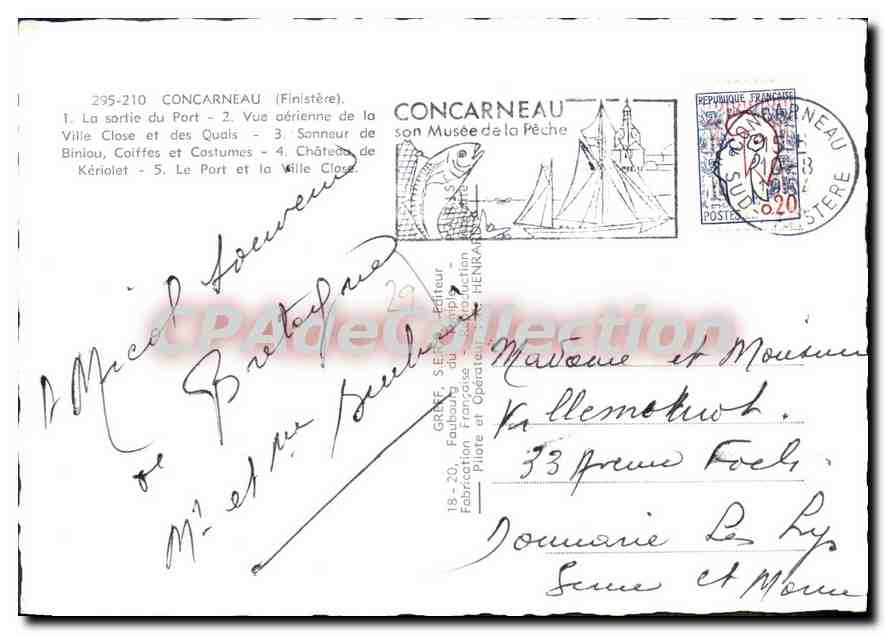 295-210 CONCARNEAU (Finistère).
1. La sortie du Port - 2. Vue aérienne de la
Ville Close et des Quais - 3. Sonneur de
Biniou, Coiffes et Costumes - 4. Château de
Kériolet - 5. Le Port et la Ville Close.
CONCARNEAU
son Musée de la Pêche
REPUBLIQUE FRANÇAISE
POSTES 0.20
CONCARNEAU
SUD FINISTERE
Micol souvenir
de Bretagne
Mr et Me
29
GREFF, S.E.R.P. - Editeur
18-20, Faubourg du Temple -
Fabrication Française - Reproduction
Pilote et Opérateur HENRARD
CPAdeCollection
Madame et Monsieur
33 Avenue Foch.
Dammarie Les Lys
Seine et Marne